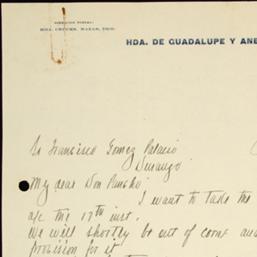 DIRECCION POSTAL:
HDA. CRUCES, NAZAS, DGO.
HDA. DE GUADALUPE Y ANE
Sr Francisco Gomez Palacio
Durango
My dear Don Pancho
I want to take the
a/c the 17th inst.
We will shortly be out of corns and
provision for it